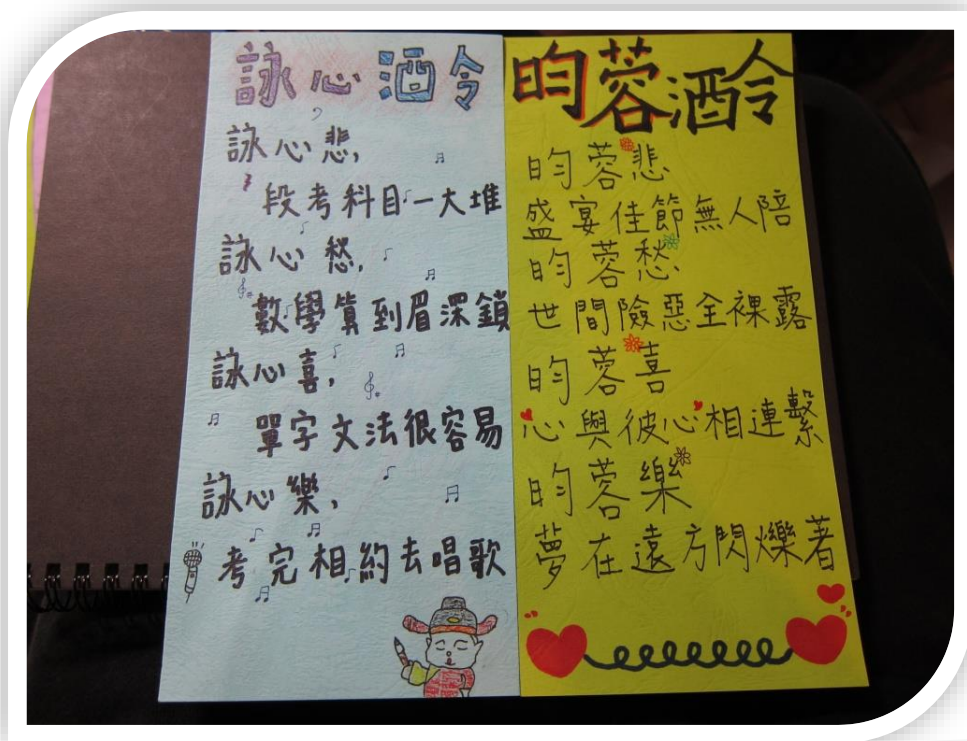 詠心酒令
詠心悲,
段考科目一大堆
詠心愁,
數學算到眉深鎖
詠心喜,
單字文法很容易
詠心樂,
考完相約去唱歌
昀蓉酒令
昀蓉悲
盛宴佳節無人陪
昀蓉愁
世間險惡全裸露
昀蓉喜
心與彼心相連繫
昀蓉樂
夢在遠方閃爍著